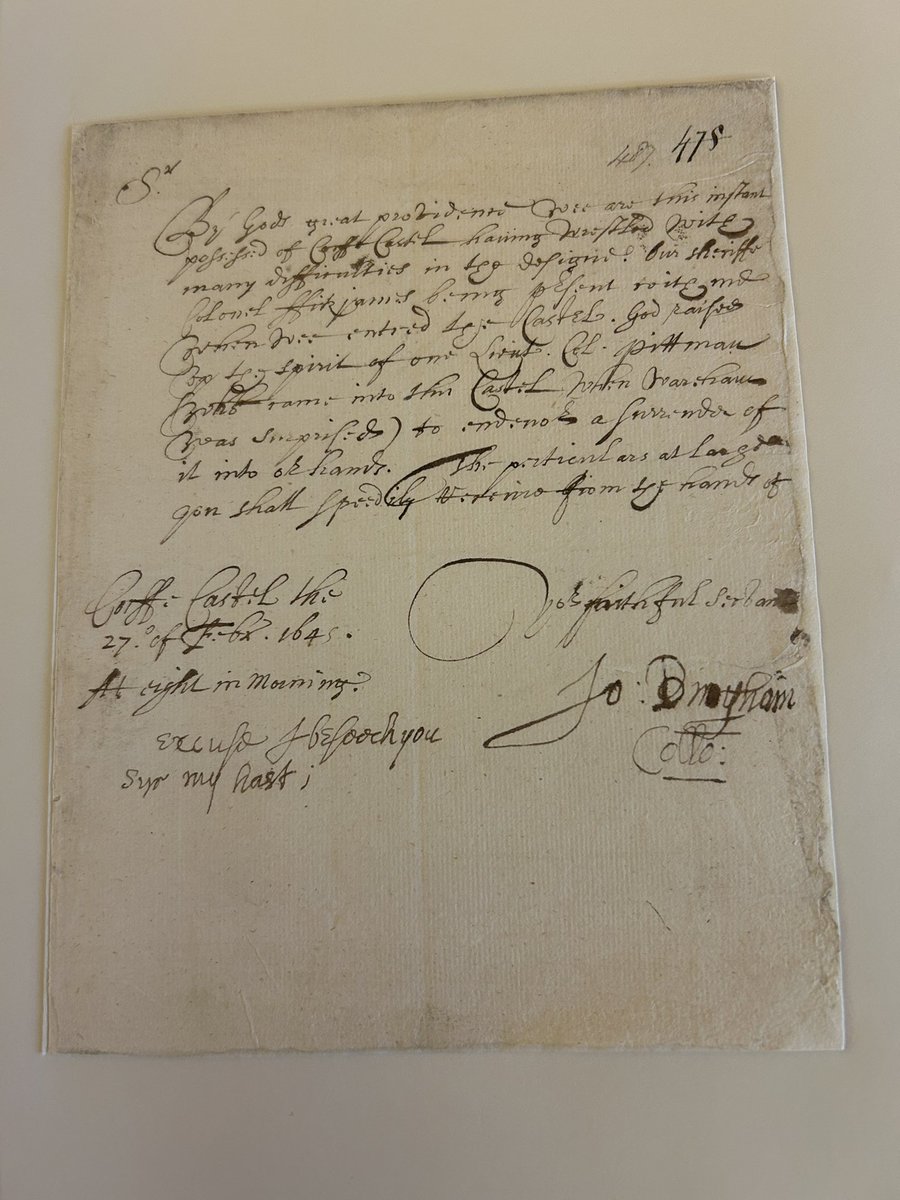 487. 475
Sr
By Gods great providence wee are this instant
possessed of Corffe Castel having wrestled with
many difficulties in the designe. Our sheriffe
Colonel ffitzjames being psent with me
when wee entred the Castel. God raised
up the spirit of one Lieut. Col. Pittman
(who came into this Castel when Warham
was surprised) to endevor a surrender of
it into or hands. The perticulars at large
you shall speedily receive from the hands of
Corffe Castel the
27.o of Febr. 1645.
At eight in Morning.
yor faithful servant
Jo: Bingham
Collo:
excuse I beseech you
Syr my hast;